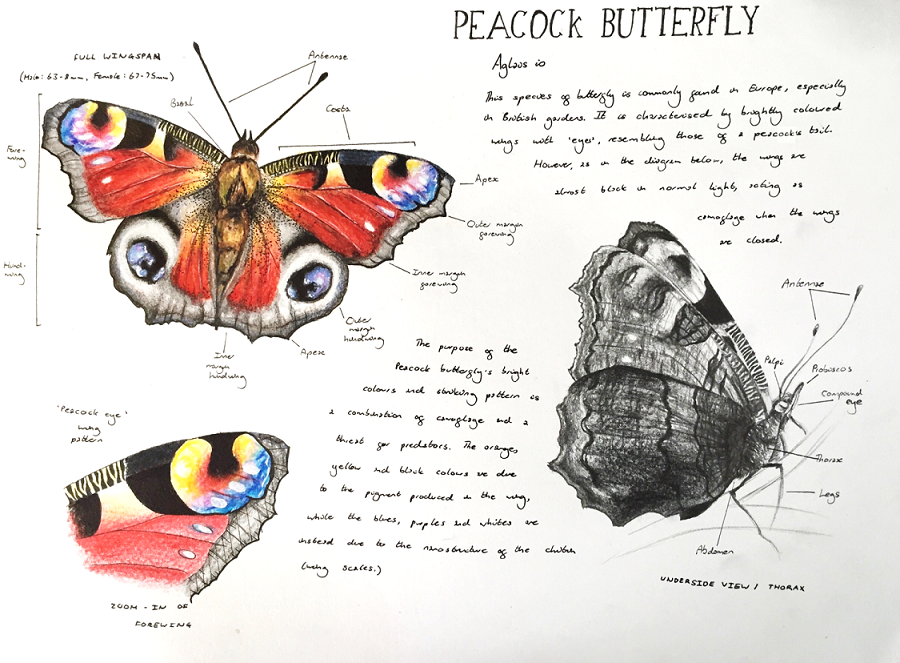 PEACOCK BUTTERFLY
Aglais io
FULL WINGSPAN
(Male: 63-8mm, Female: 67-75mm)
Antennae
Basal
Costa
Fore-
wing
Hind-
wing
Apex
Outer margin
forewing
Inner margin
forewing
Outer
margin
hindwing
Apex
Inner
margin
hindwing
This species of butterfly is commonly found in Europe, especially
in British gardens. It is characterised by brightly coloured
wings with 'eyes', resembling those of a peacock's tail.
However, as in the diagram below, the wings are
almost black in normal light, acting as
camoflage when the wings
are closed.
The purpose of the
Peacock butterfly's bright
colours and striking pattern is
a combination of camoflage and a
threat for predators. The orange,
yellow and black colours are due
to the pigment produced in the wing,
while the blues, purples and whites are
instead due to the nanostructure of the chitin
(wing scales.)
'Peacock eye'
wing
pattern
ZOOM-IN OF
FOREWING
Antennae
Palpi
Proboscis
Compound
eye
Thorax
Legs
Abdomen
UNDERSIDE VIEW / THORAX